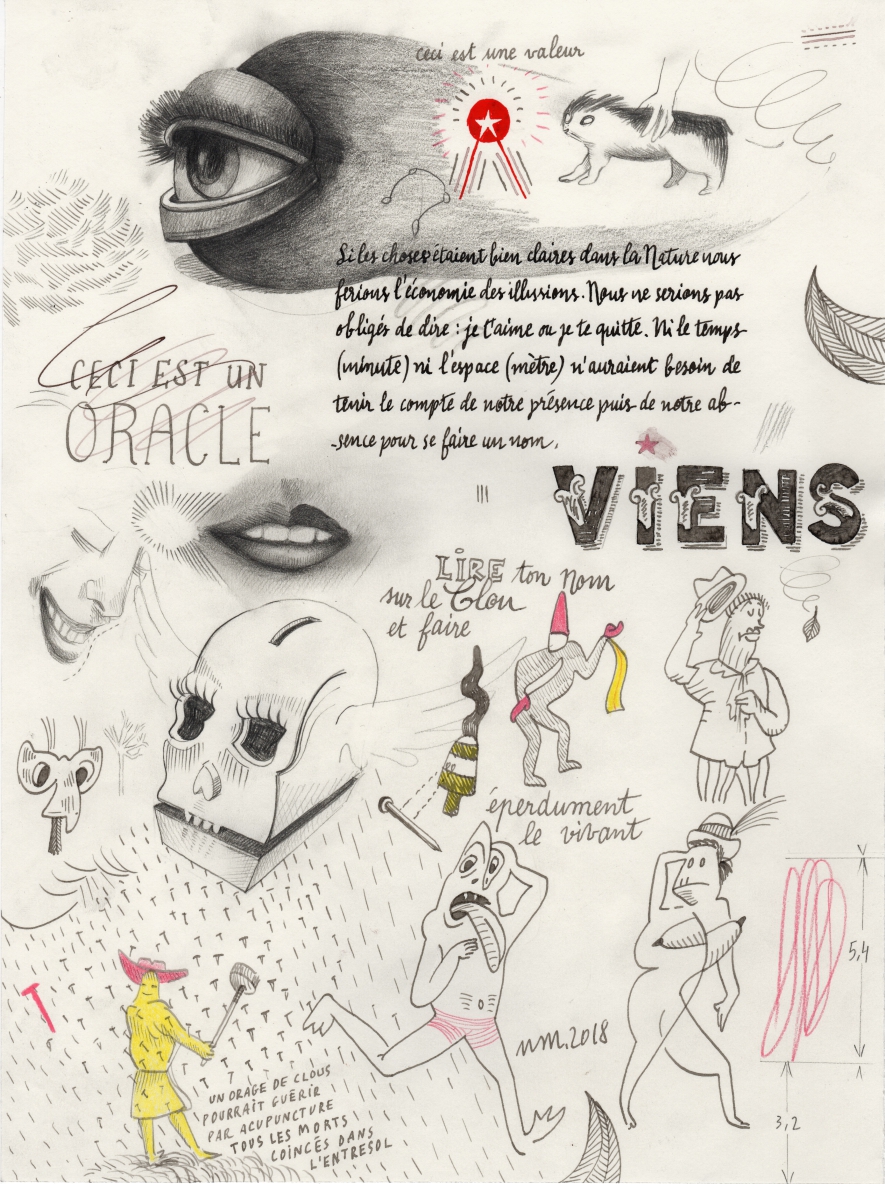 ceci est une valeur
Si les choses étaient bien claires dans la Nature nous
ferions l'économie des illusions. Nous ne serions pas
obligés de dire : je t'aime ou je te quitte. Ni le temps
(minute) ni l'espace (mètre) n'auraient besoin de
tenir le compte de notre présence puis de notre ab-
-sence pour se faire un nom.
CECI EST UN
ORACLE
VIENS
LIRE ton nom
sur le Clou
et faire
éperdument
le vivant
5,4
nm. 2018
3,2
UN ORAGE DE CLOUS
POURRAÎT GUÉRIR
PAR ACUPUNCTURE
TOUS LES MORTS
COÎNCÉS DANS
L'ENTRESOL